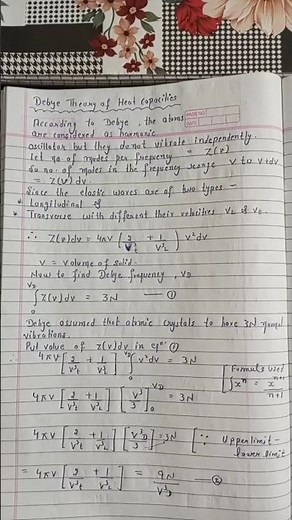 Debye Theory of Heat Capacities
PAGE NO.
According to Debye, the atoms
are considered as harmonic
oscillator but they do not vibrate independently.
Let no of modes per frequency = Z(ν)
So no. of modes in the frequency range ν to ν+dν
= Z(ν) dν
Since the elastic waves are of two types -
* Longitudinal &
* Transverse with different their velocities V_L & V_t.
∴ Z(ν)dν = 4πV (2/V³_t + 1/V³_L) ν²dν
V = Volume of solid.
Now to find Debye frequency, ν_D
∫₀^ν_D Z(ν)dν = 3N — ①
Debye assumed that atomic crystals to have 3N normal
vibrations.
Put value of Z(ν)dν in eqⁿ ①
∴ 4πV [2/V³_t + 1/V³_L] ∫₀^ν_D ν²dν = 3N
[Formula used
4πV [2/V³_t + 1/V³_L] [ν³/3]₀^ν_D = 3N
[∫xⁿ = xⁿ⁺¹/n+1
4πV [2/V³_t + 1/V³_L] [ν³_D/3] = 3N [∵ Upper limit -
lower limit
= 4πV [2/V³_t + 1/V³_L] = 9N/ν³_D — ②